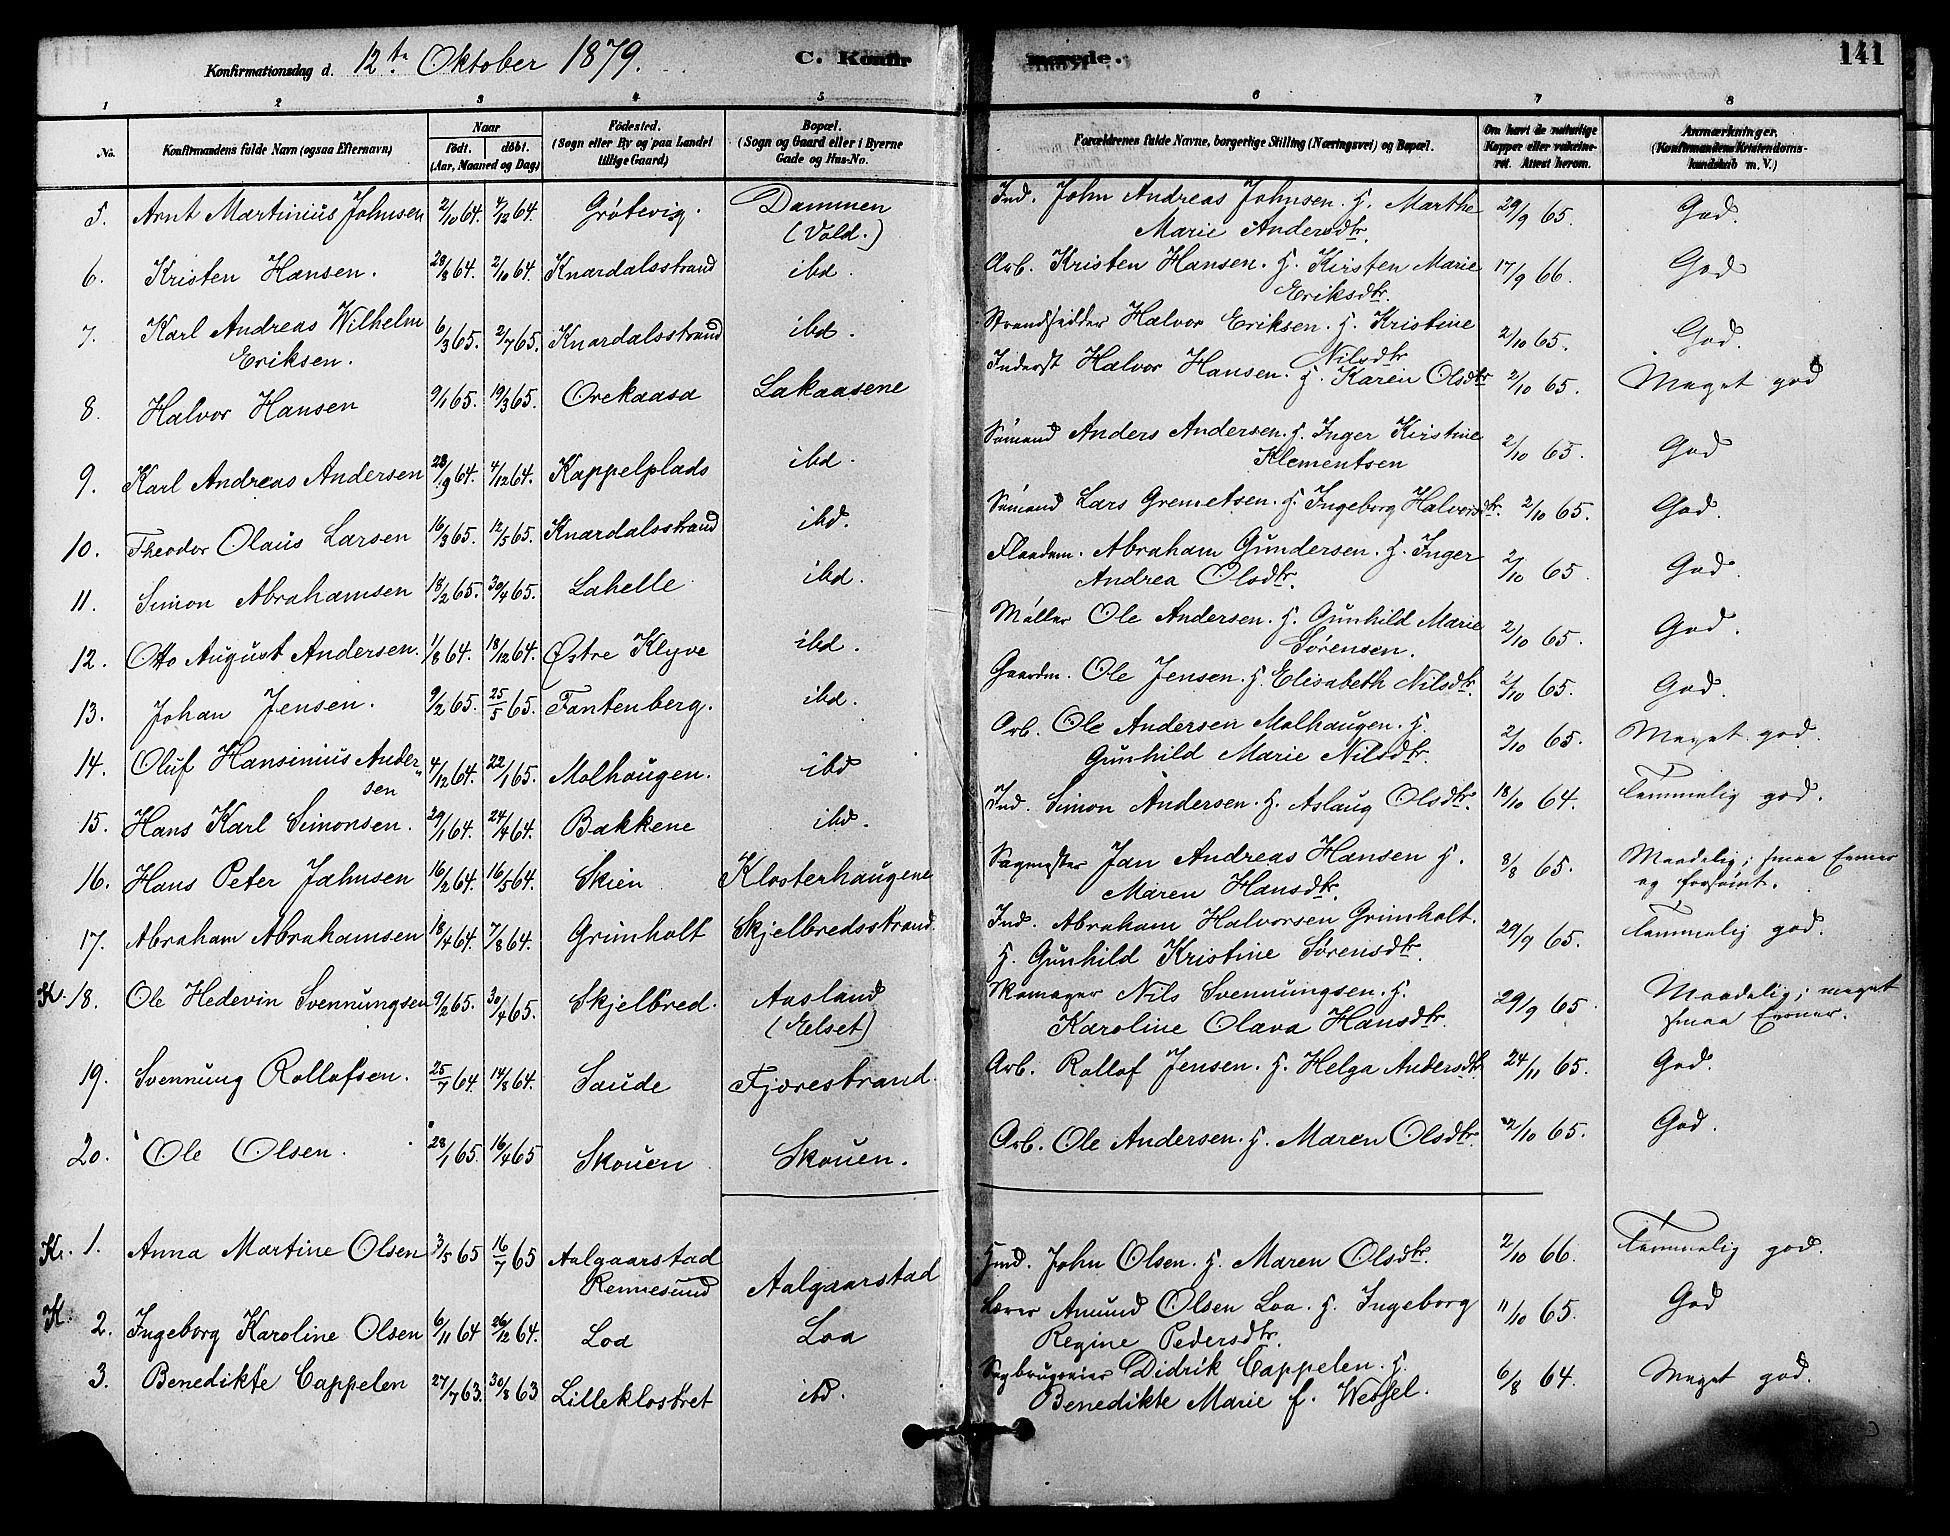 Konfirmationsdag d. 12te Oktober 1879. C. Konfirmerede. 141
1 2 3 4 5 6 7 8
No. Konfirmandens fulde Navn (ogsaa Efternavn) Naar født. døbt. (Aar, Maaned og Dag) Fødested. (Sogn eller By og paa Landet tillige Gaard) Bopæl. (Sogn og Gaard eller i Byerne Gade og Hus-No. Forældrenes fulde Navne, borgerlige Stilling (Næringsvei) og Bopæl. Om havt de naturlige Kopper eller vaksineret. Attest herom. Anmærkninger. (Konfirmandens Kristendomskundskab m. V.)
5. Arnt Martinius Johnsen 2/10 64. 4/12 64. Grøtevig. Dammen (Vold.) Ind. John Andreas Johnsen. H. Marthe Marie Andersdtr. 29/9 65. God.
6. Kristen Hansen. 28/8 64. 2/10 64. Knardalsstrand ibd. Arb. Kristen Hansen. H. Kirsten Marie Eriksdtr. 17/9 66. God
7. Karl Andreas Wilhelm Eriksen. 6/3 65. 2/7 65. Knardalsstrand ibd. Strandsidder Halvor Eriksen. H. Kristine Nilsdtr 2/10 65. God.
8. Halvor Hansen 9/1 65. 19/3 65. Orekaasa Lakaasene Inderst Halvor Hansen. H. Karen Olsdtr 2/10 65. Meget god
9. Karl Andreas Andersen 28/9 64. 4/12 64. Kappelplads ibd. Sømand Anders Andersen. H. Inger Kirstine Klementsen 2/10 65. God
10. Theodor Olaus Larsen 16/3 65. 12/5 65. Knardalsstrand ibd. Sømand Lars Gremetsen. H. Ingeborg Halvorsdtr. 2/10 65. God.
11. Simon Abrahamsen 18/2 65. 30/4 65. Lahelle ibd. Flaadem. Abraham Gundersen. H. Inger Andrea Olsdtr. 2/10 65. God.
12. Otto August Andersen. 1/8 64. 18/12 64. Østre Klyve ibd. Møller Ole Andersen. H. Gunhild Marie Sørensen. 2/10 65. God.
13. Johan Jensen. 9/2 65. 25/5 65. Fantenberg. ibd. Gaardm. Ole Jensen. H. Elisabeth Nilsdtr. 2/10 65. God.
14. Oluf Hansinius Andersen 4/12 64. 22/1 65. Molhaugen. ibd Arb. Ole Andersen Molhaugen. H. Gunhild Marie Nilsdtr. 2/10 65. Meget god.
15. Hans Karl Simonsen. 29/1 64. 24/4 64. Bakkene ibd. Ind. Simon Andersen. H. Aslaug Olsdtr. 18/10 64. Temmelig god.
16. Hans Peter Jahnsen 16/2 64. 16/5 64. Skien Klosterhaugene Sagmester Jan Andreas Hansen H. Maren Hansdtr. 8/8 65. Maadelig; smaa Evner og forsømt.
17. Abraham Abrahamsen 18/4 64. 7/8 64. Grimholt Skjelbredsstrand. Ind. Abraham Halvorsen Grimholt. H. Gunhild Kristine Sørensdtr. 29/9 65. Temmelig god.
K. 18. Ole Hedevin Svennungsen 9/2 65. 30/4 65. Skjelbred. Aasland (Melset) Skomager Nils Svennungsen. H. Karoline Olava Hansdtr. 29/9 65. Maadelig; meget smaa Evner.
19. Svennung Rollofsen. 25/7 64. 14/8 64. Saude Fjærestrand. Arb. Rollof Jensen. H. Helga Andersdtr 24/11 65. God.
20. Ole Olsen. 28/1 65. 16/4 65 Skouen Skouen. Arb. Ole Andersen. H. Maren Olsdtr. 2/10 65. God.
K. 1. Anna Martine Olsen 3/5 65 16/7 65 Aalgaarstad Rennesund Aalgaarstad Hmd. John Olsen. H. Maren Olsdtr. 2/10 66. Temmelig god.
K. 2. Ingeborg Karoline Olsen 6/11 64 26/12 64. Loa Loa Lærer Amund Olsen Loa. H. Ingeborg Regine Pedersdtr. 11/10 65. God
3. Benedikte Cappelen 27/7 63. 30/8 63 Lilleklostret ibd. Sagbrugseier Didrik Cappelen. H. Benedikte Marie f. Wessel. 6/8 64. Meget god.